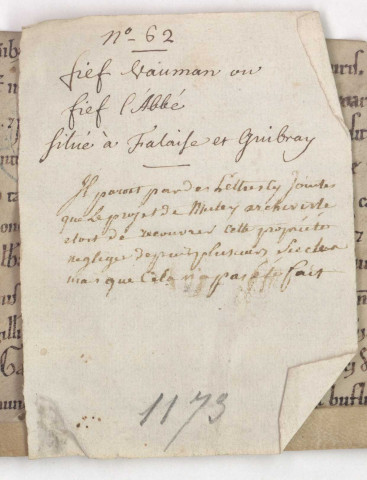 No. 62
fief Vauman ou
fief l'Abbé
situé à Falaise et Guibray
Il paroit par des Lettres cy Jointe
que Le projet de archiviste
etoit de recouvrer cette propriété
negligée depuis plusieurs Siecles
mais que Cela n'a pas été fait
1173